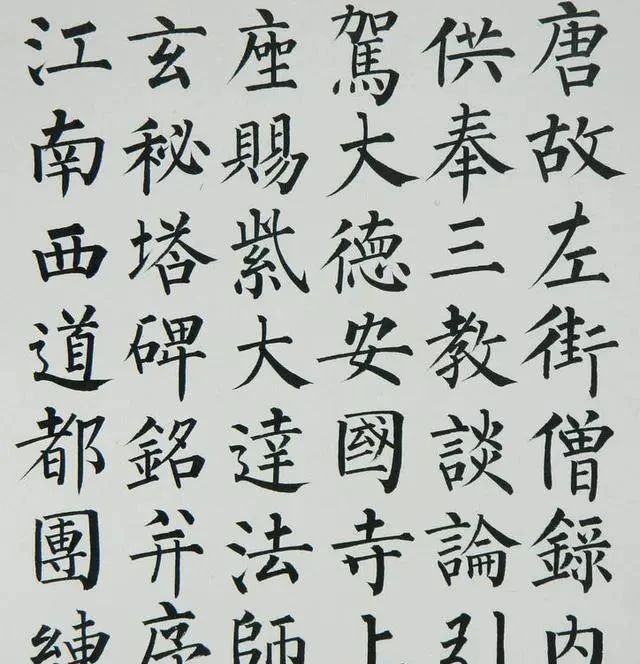 唐故左街僧錄內
供奉三教談論引
駕大德安國寺上
座賜紫大達法師
玄秘塔碑銘并序
江南西道都團練